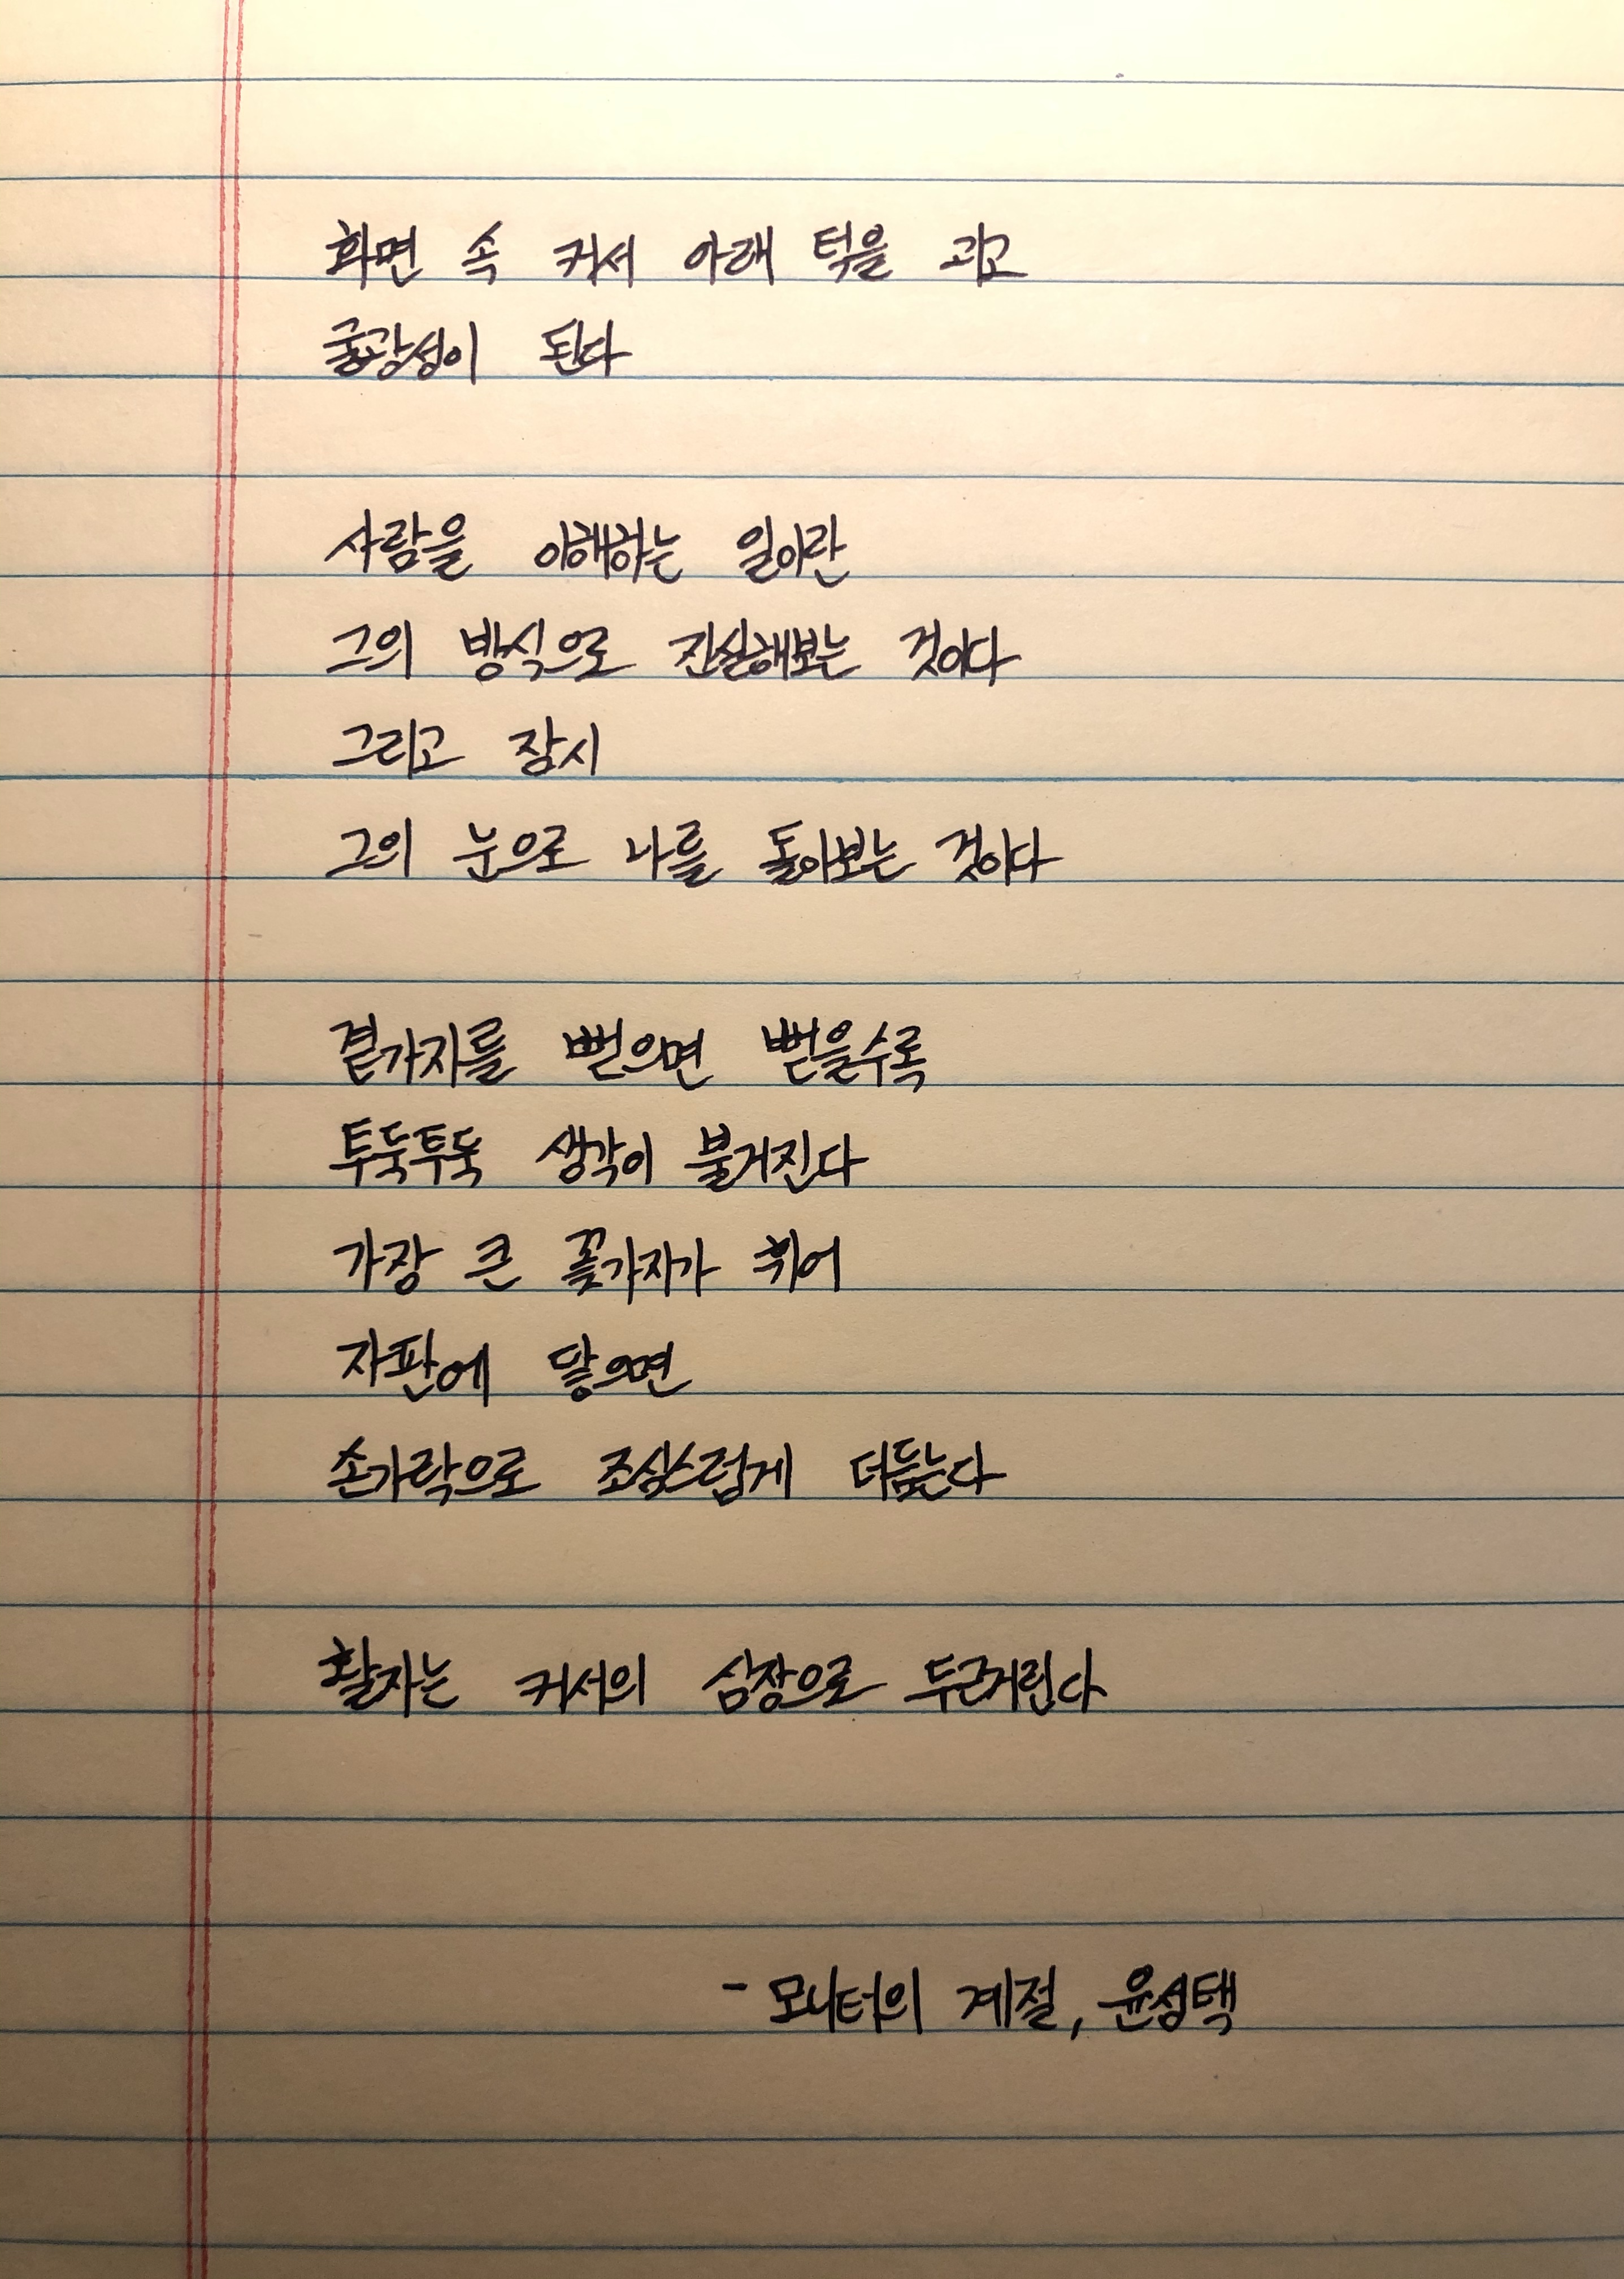 화면 속 커서 아래 턱을 괴고
굴광성이 된다
사람을 이해하는 일이란
그의 방식으로 진실해보는 것이다
그리고 잠시
그의 눈으로 나를 돌아보는 것이다
곁가지를 뻗으면 뻗을수록
투둑투둑 생각이 불거진다
가장 큰 꽃가지가 휘어
자판에 닿으면
손가락으로 조심스럽게 더듬는다
활자는 커서의 심장으로 두근거린다
- 모니터의 계절, 윤성택